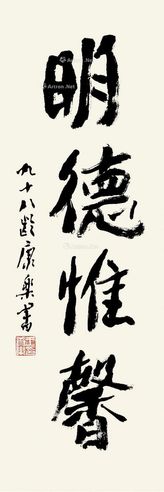 明德惟馨
九十八龄康乐书
Artron.Net